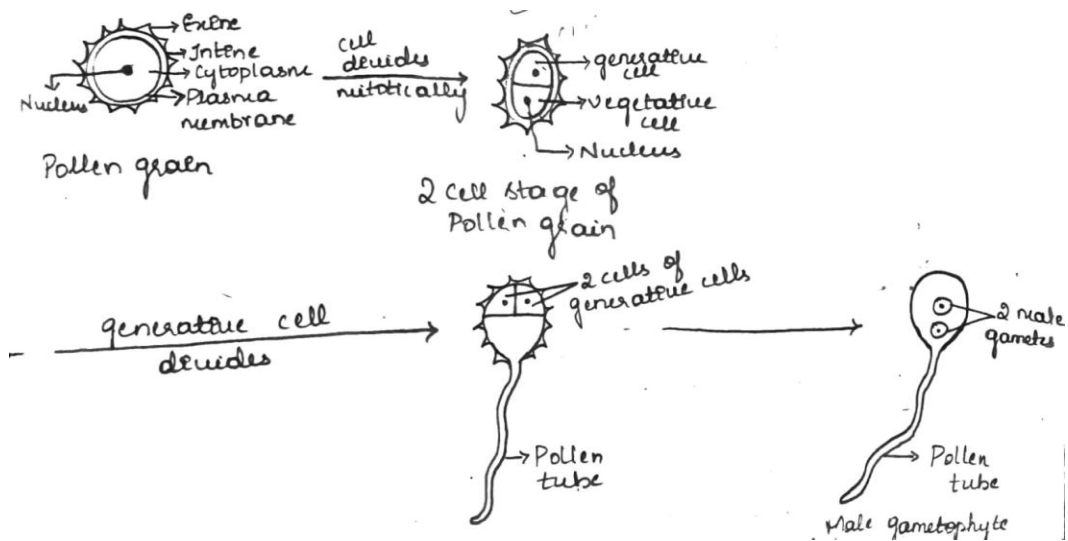 Exine
Intine
Cytoplasme
Nucleus
Plasma
membrane
Pollen grain
cell
devides
mitotically
generative
cell
vegetative
cell
Nucleus
2 cell stage of
Pollen grain
generative cell
devides
2 cells of
generative cells
Pollen
tube
2 male
gametes
Pollen
tube
Male gametophyte